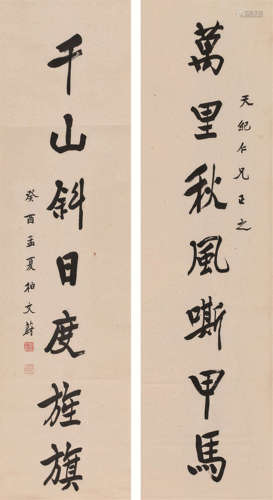 萬里秋風嘶甲馬
天紀仁兄正之
千山斜日度旌旗
癸酉孟夏柏文蔚